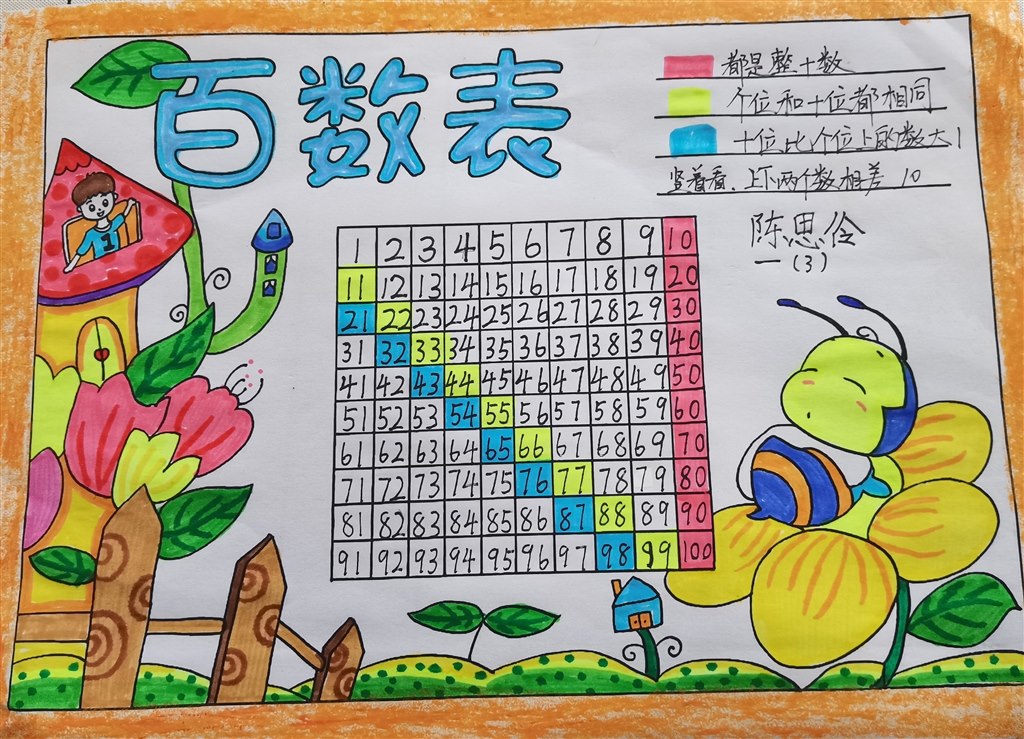 百数表
都是整十数
个位和十位都相同
十位比个位上的数大1
竖着看.上下两个数相差10
陈思伶
一(3)
1
1 2 3 4 5 6 7 8 9 10
11 12 13 14 15 16 17 18 19 20
21 22 23 24 25 26 27 28 29 30
31 32 33 34 35 36 37 38 39 40
41 42 43 44 45 46 47 48 49 50
51 52 53 54 55 56 57 58 59 60
61 62 63 64 65 66 67 68 69 70
71 72 73 74 75 76 77 78 79 80
81 82 83 84 85 86 87 88 89 90
91 92 93 94 95 96 97 98 99 100